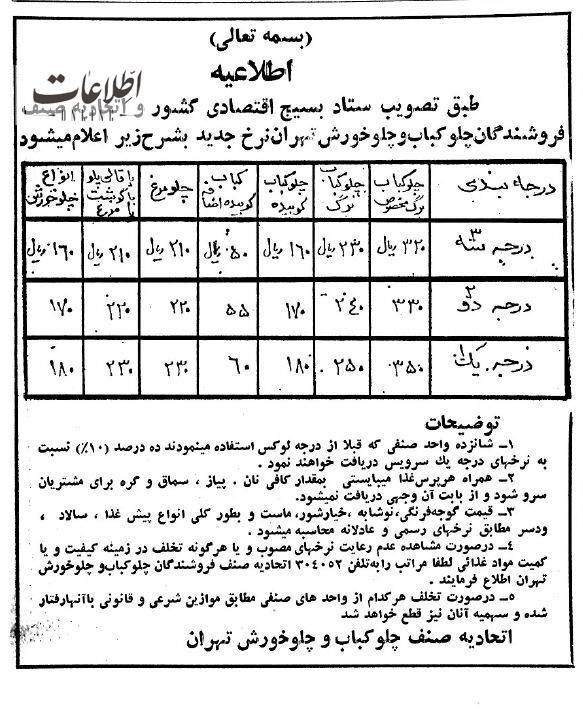 (بسمه تعالی)
اطلاعیه
اطلاعات
طبق تصویب ستاد بسیج اقتصادی کشور و اتحادیه صنف
فروشندگان چلوکباب و چلوخورش تهران نرخ جدید بشرح زیر اعلام میشود
درجه بندی | چلوکباب برگ مخصوص | چلوکباب برگ | چلوکباب کوبیده | کباب کوبیده اضافی | چلومرغ | باقالی پلو با گوشت یا مرغ | انواع چلوخورش
درجه ۳ سه | ۳۲۰ ریال | ۲۳۰ ریال | ۱۶۰ ریال | ۵۰ ریال | ۲۱۰ ریال | ۲۱۰ ریال | ۱۶۰ ریال
درجه ۲ دو | ۳۳۰ | ۲۴۰ | ۱۷۰ | ۵۵ | ۲۲۰ | ۲۲۰ | ۱۷۰
درجه یک ۱ | ۳۵۰ | ۲۵۰ | ۱۸۰ | ۶۰ | ۲۳۰ | ۲۳۰ | ۱۸۰
توضیحات
۱ــ شانزده واحد صنفی که قبلا از درجه لوکس استفاده مینمودند ده درصد (۱۰٪) نسبت
به نرخهای درجه یك سرویس دریافت خواهند نمود .
۲ــ همراه هرپرس غذا میبایستی بمقدار کافی نان . پیاز ، سماق و گره برای مشتریان
سرو شود و از بابت آن وجهی دریافت نمیشود.
۳ــ قیمت گوجه‌فرنگی، نوشابه ،خیارشور، ماست و بطور کلی انواع پیش غذا ، سالاد ،
ودسر مطابق نرخهای رسمی و عادلانه محاسبه میشود .
۴ــ درصورت مشاهده عدم رعایت نرخهای مصوب و یا هرگونه تخلف در زمینه کیفیت و یا
کمیت مواد غذائی لطفا مراتب را به‌تلفن ۳۰۴۰۵۲ اتحادیه صنف فروشندگان چلوکباب‌و چلوخورش
تهران اطلاع فرمایند .
۵ــ درصورت تخلف هرکدام از واحد های صنفی مطابق موازین شرعی و قانونی باآنهارفتار
شده و سهمیه آنان نیز قطع خواهد شد
اتحادیه صنف چلوکباب و چلوخورش تهران